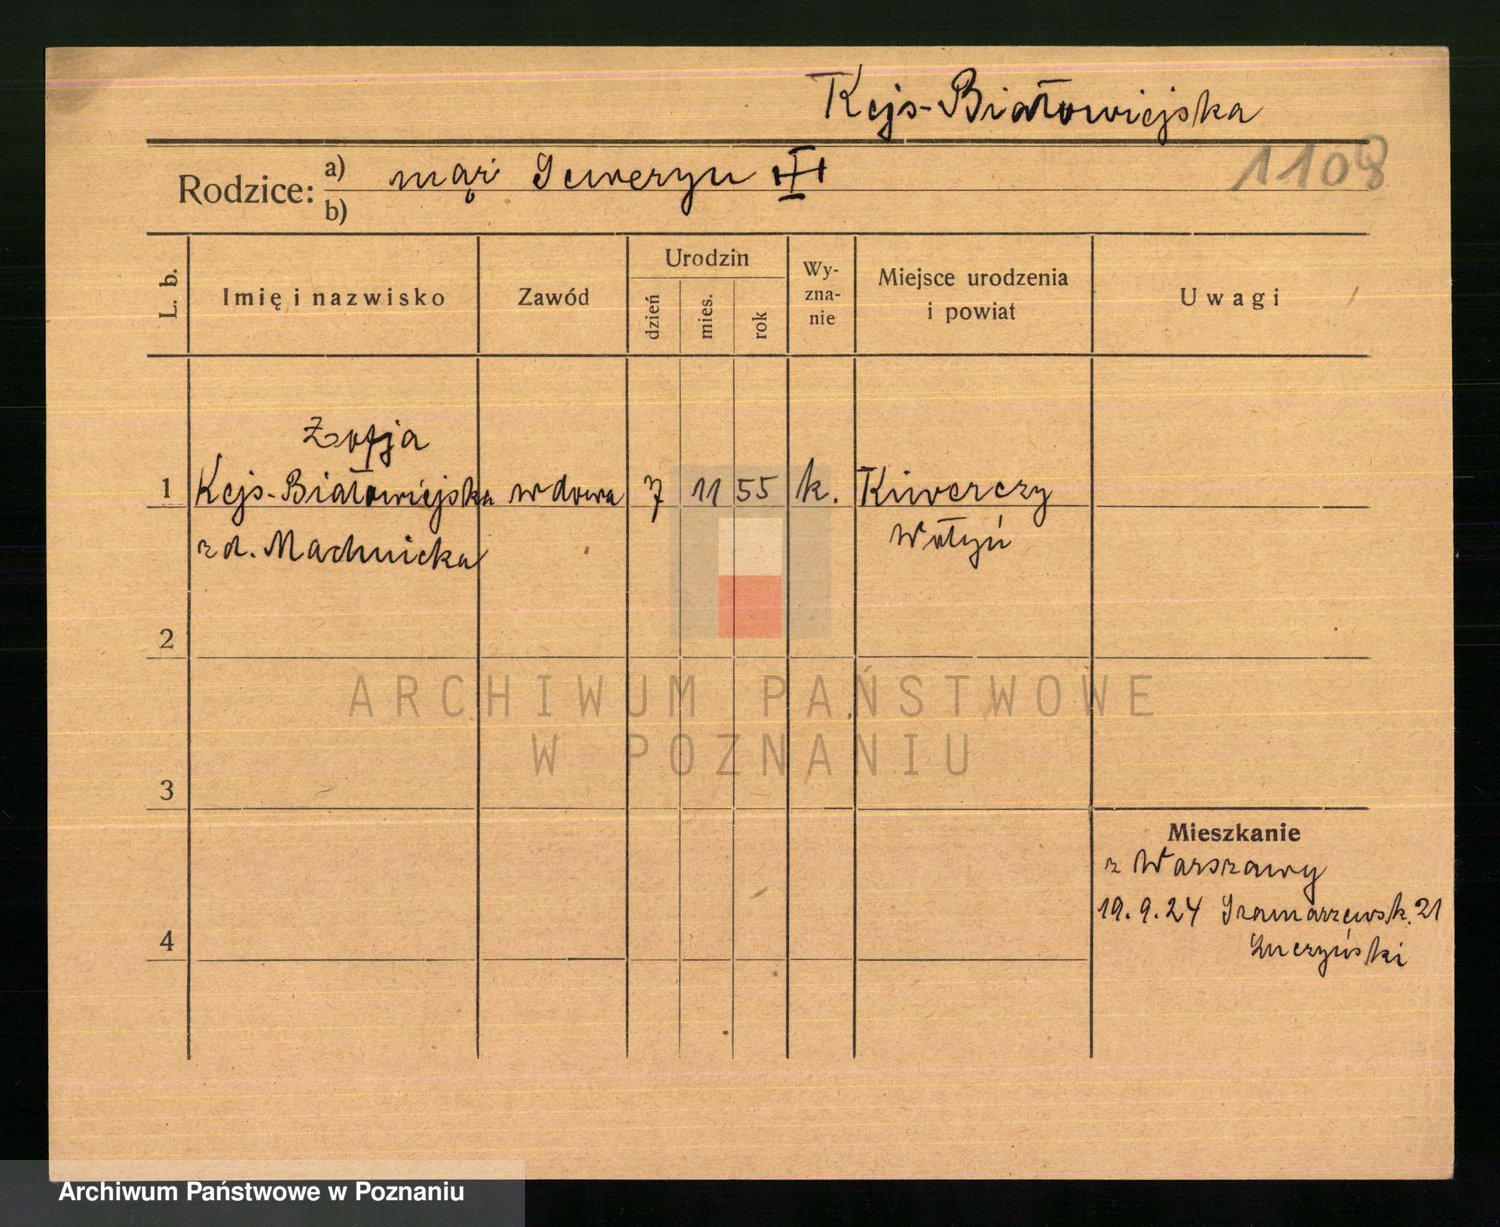 Kejs-Białowiejska
1108
Rodzice: a) mąż Seweryn
b)
L. b.
Imię i nazwisko
Zawód
Urodzin
dzień
mies.
rok
Wy-
zna-
nie
Miejsce urodzenia
i powiat
Uwagi
Zofja
1 Kejs-Białowiejska wdowa 7 11 55 k. Kiwerczy
z d. Machnicka Wołyń
2
ARCHIWUM PAŃSTWOWE
W POZNANIU
3
Mieszkanie
z Warszawy
19.9.24 Gramarzewsk. 21
4
Archiwum Państwowe w Poznaniu